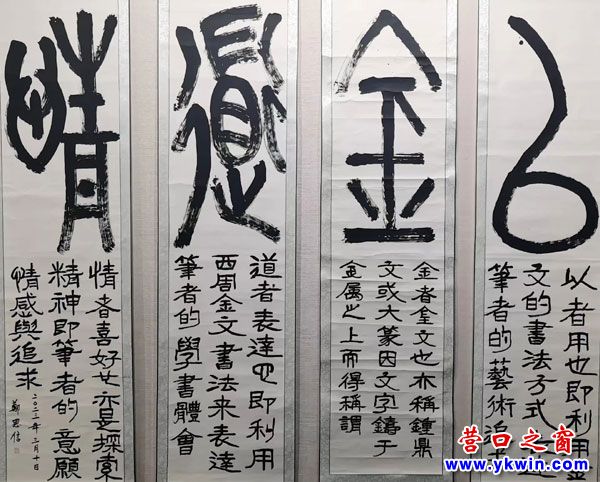 以
以者用也即利用金
文的書法方式
筆者的藝術追
金
金者金文也亦稱鍾鼎
文或大篆因文字鑄于
金属之上而得稱謂
道
道者表達也即利用
西周金文書法来表達
筆者的學書體會
情
情者喜好也亦是探索
精神即筆者的意願
情感與追求
营口之窗
www.ykwin.com